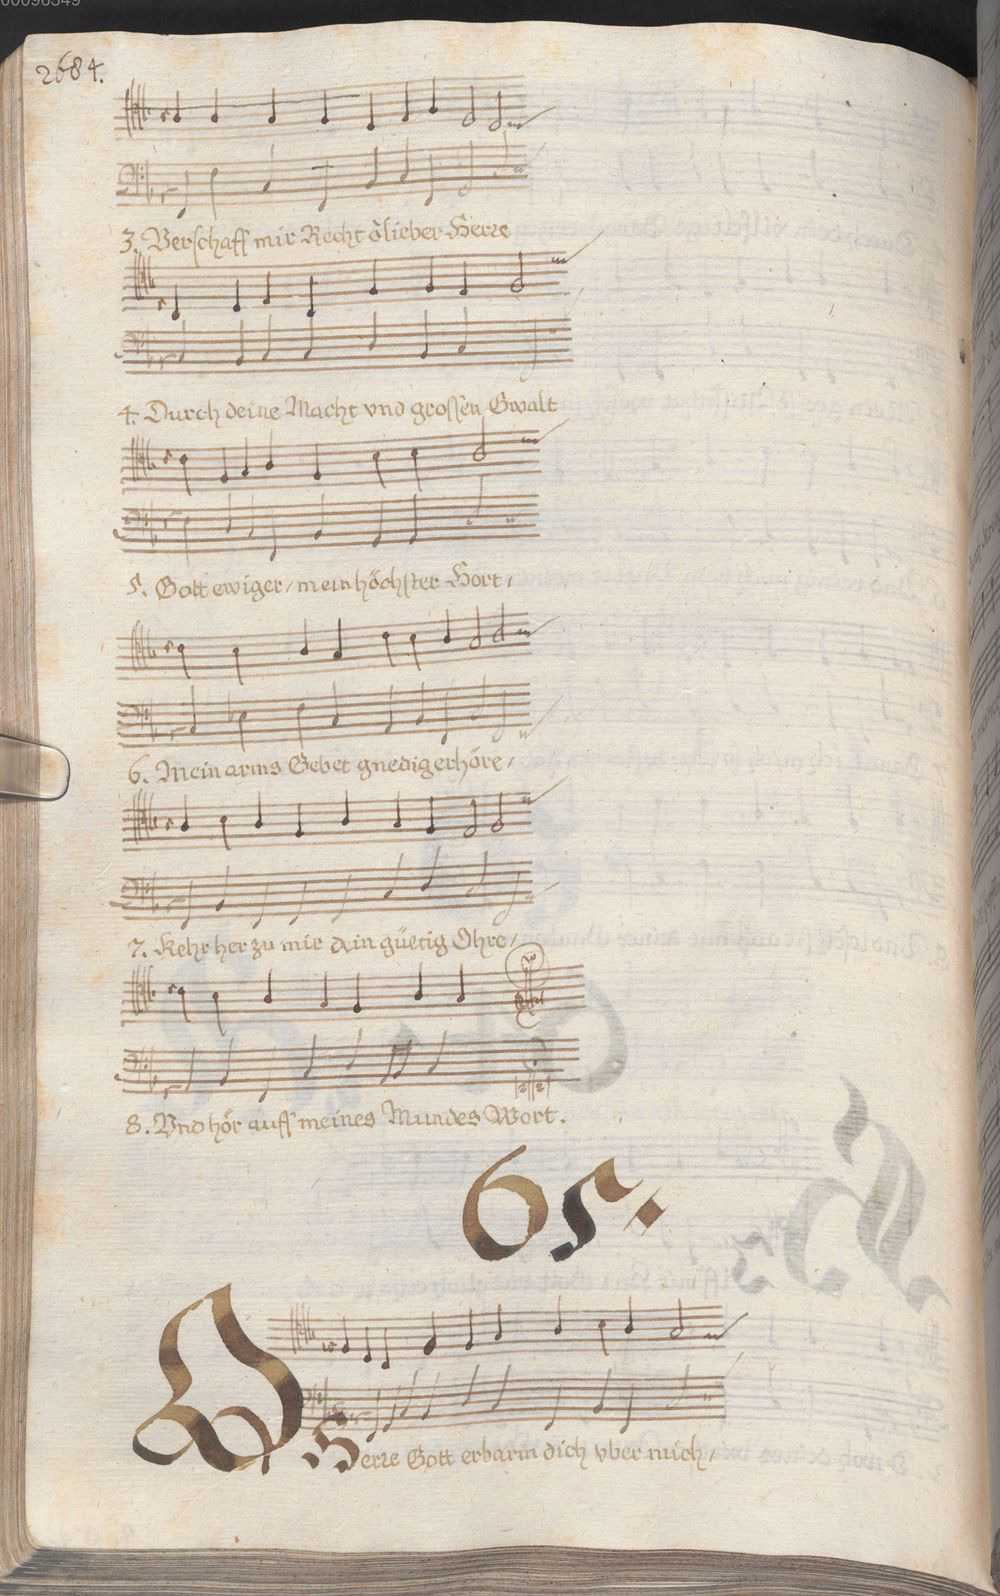 00096349
2684.
3. Verschaff mir Recht ô lieber Herre
4. Durch deine Macht vnd grossen Gwalt
5. Gott ewiger / mein höchster Hort /
6. Mein arms Gebet gnedig erhöre /
7. Kehr her zu mir dein güetig Ohre /
8. Vnd hör auff meines Mundes Wort.
65.
O Herre Gott erbarm dich vber mich /